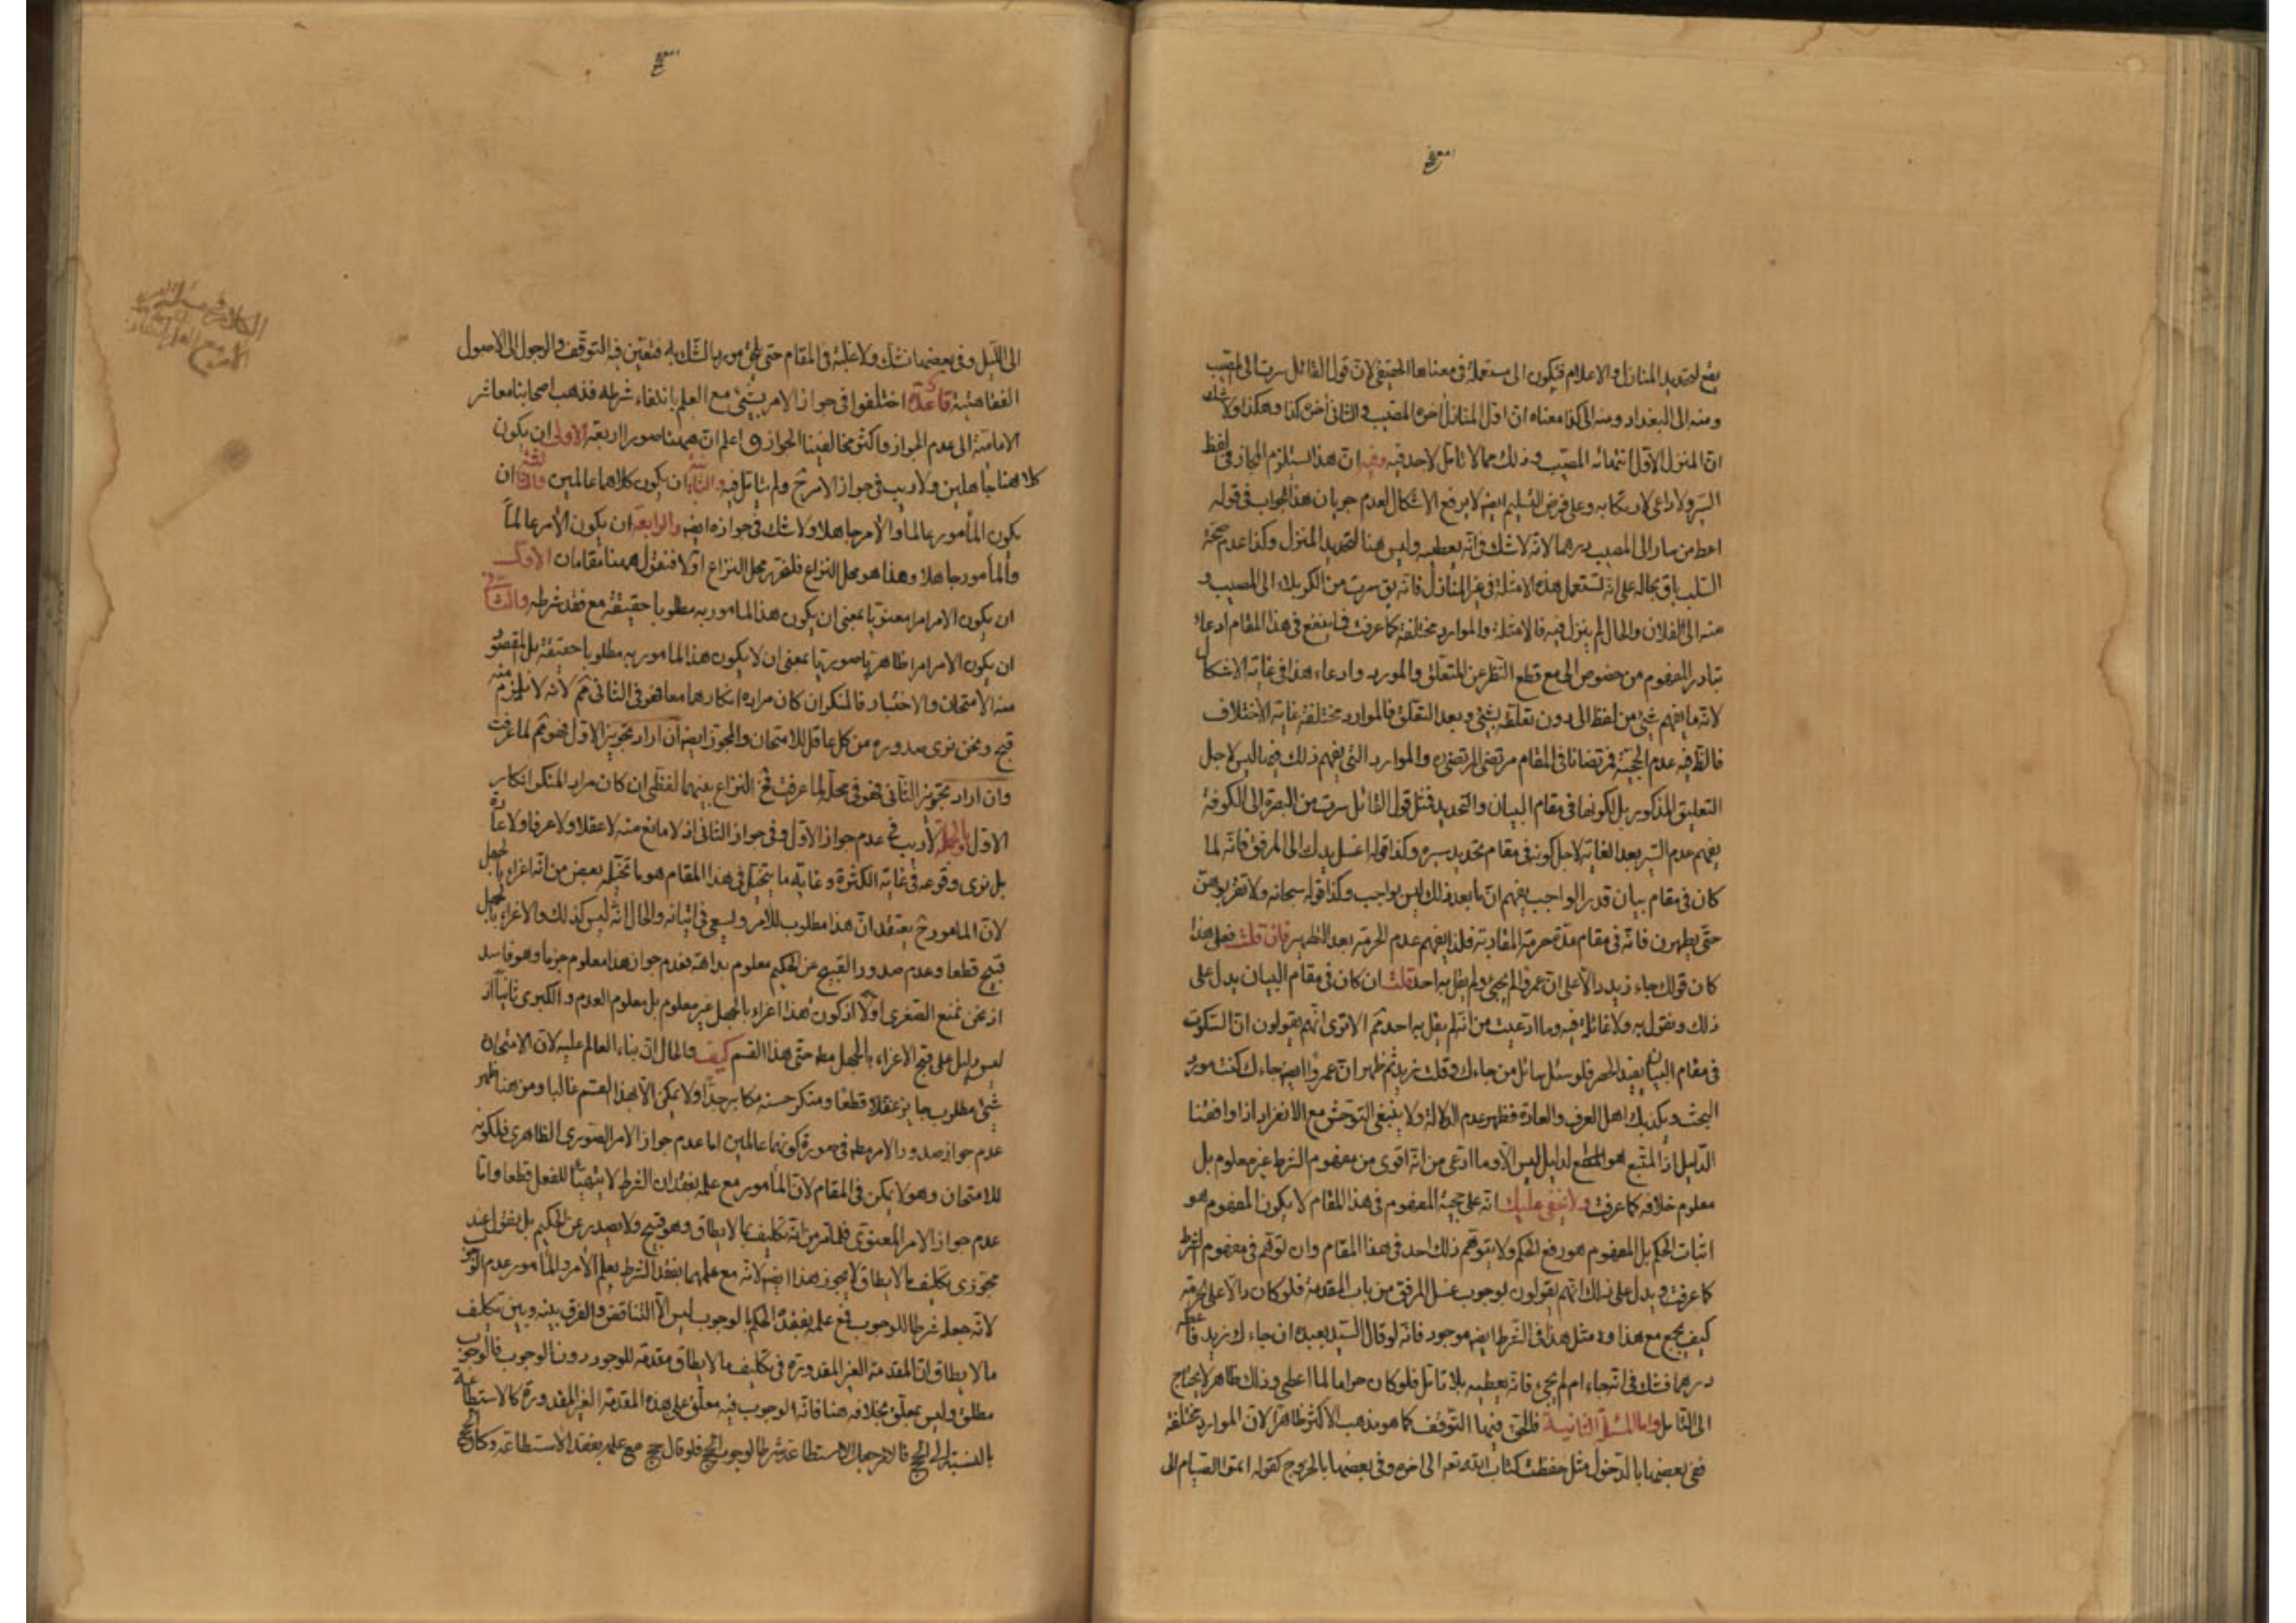 يقع لتحديد المنازل والاعلام فيكون الى مستعملة في معناها الحقيقي لان قول القائل سرت الى المصيب
ومنه الى البغداد ومنه الى كذا معناه ان اول المنازل اخره المصيب والثاني اخره كذا وهكذا ولا شك
ان المنزل الاول انتهائه المصيب وذلك مما لا تامل لاحد فيه وفيه ان هذا يستلزم المجاز في لفظ
السير ولا داعى لارتكابه وعلى فرض التسليم ايضا لا يرفع الاشكال لعدم جريان هذا الجواب في قوله
اعط من سار الى المصيب درهما لانه لا شك في انه يعطيه وليس هنا لتحديد المنزل وكذا عدم صحة
السلب باق بحاله على انه تستعمل هذه الامثلة في غير المنازل فانه يق سرت من الكربلاء الى المصيب و
منه الى الفلان والحال لم ينزل فيه فالامثلة والموارد مختلفة كما عرفت فما ينفع في هذا المقام ادعاء
تبادر المفهوم من خصوص الى مع قطع النظر عن المتعلق والمورد وادعاء هذا في غاية الاشكال
لانه ما يفهم شئ من لفظ الى دون تعلقه بشئ وبعد التعلق فالموارد مختلفة غاية الاختلاف
فالظ فيه عدم الحجية فمرتضانا في المقام مرتضى المرتضى ره والموارد التي يفهم ذلك فيها ليس لاجل
التعليق المذكور بل لكونها في مقام البيان والتحديد فمثل قول القائل سرت من البصرة الى الكوفة
يفهم عدم السير بعد الغاية لاجل كونه في مقام تحديد سيره وكذا قوله اغسل يدك الى المرفق فانه لما
كان في مقام بيان قدر الواجب يفهم ان ما بعد ذلك ليس بواجب وكذا قوله سبحانه ولا تقربوهن
حتى يطهرن فانه في مقام مدة حرمة المقاربة فلذا يفهم عدم الحرمة بعد التطهير فان قلت فعلى هذا
كان قولك جاء زيد دالا على ان عمروا لم يجئ ولم يقل به احد قلت ان كان في مقام البيان يدل على
ذلك ونقول به ولا غائلة فيه وما ادعيت من انه لم يقل به احد ثم الا ترى انهم يقولون ان السكوت
في مقام البيان يفيد الحصر فلو سئل سائل من جاءك وقلت زيد ثم ظهر ان عمروا ايضا جاءك كنت مورد
البحث ويكذبك اهل العرف والعادة فظهر عدم الدلالة ولا ينبغى التوحش مع الانفراد اذا وافقنا
الدليل اذ المتبع هو القطع لدليل ليس الا وما ادعى من انه اقوى من مفهوم الشرط غير معلوم بل
معلوم خلافه كما عرفت ولا يخفى عليك انه على حجية المفهوم في هذا المقام لا يكون المفهوم هو
اثبات الحكم بل المفهوم هو رفع الحكم ولا يتوهم ذلك احد في هذا المقام وان توهم في مفهوم الشرط
كما عرفت ويدل على ذلك انهم يقولون بوجوب غسل المرفق من باب المقدمة فلو كان دالا على حرمته
كيف يجمع مع هذا ومثل هذا في الشرط ايضا موجود فانه لو قال السيد لعبده ان جاءك زيد فاعطه
درهما فشك في انه جاء ام لم يجئ فانه يعطيه بلا تامل فلو كان حراما لما اعطى وذلك ظاهر لا يحتاج
الى التامل واما المسئلة الثانية فالحق فيها التوقف كما هو مذهب الاكثر ظاهرا لان الموارد مختلفة
ففي بعضها بالدخول مثل حفظت كتاب الله تعه الى اخره وفي بعضها بالخروج كقوله اتموا الصيام الى
الى الليل وفي بعضها نشك ولا غلبة في المقام حتى يلحق مورد الشك به فتعين فيه التوقف والرجوع الى الاصول
الفقاهتية قاعدة اختلفوا في جواز الامر بشئ مع العلم بانتفاء شرطه فذهب اصحابنا معاشر
الامامية الى عدم الجواز واكثر مخالفينا الجواز واعلم ان ههنا صورا اربعة الاولى ان يكون
كلاهما جاهلين ولا ريب في جواز الامر ح ولم يتامل فيه والثانية ان يكون كلاهما عالمين والثالثة ان
يكون المأمور عالما والآمر جاهلا ولا شك في جوازه ايضا والرابعة ان يكون الآمر عالماً
والمأمور جاهلا وهذا هو محل النزاع فلنقرر محل النزاع اولا فنقول ههنا مقامان الاول
ان يكون الامر امرا معنويا بمعنى ان يكون هذا المامور به مطلوبا حقيقة مع فقد شرطه والثاني
ان يكون الامر امرا ظاهريا صوريا بمعنى ان لا يكون هذا المامور به مطلوبا حقيقة بل المقصود
منه الامتحان والاختبار فالمنكر ان كان مراده انكارهما معا فهو في الثاني ثم لانه لا يلزم منه
قبح ونحن نرى صدوره من كل عاقل للامتحان والمجوز ايضا ان اراد تجويز الاول فهو ثم لما عرفت
وان اراد تجويز الثاني فهو في محله لما عرفت فح النزاع بينهما لفظي ان كان مراد المنكر انكار
الاول وبالجملة لا ريب في عدم جواز الاول وفي جواز الثاني اذ لا مانع منه لا عقلا ولا عرفا ولا عادة
بل نرى وقوعه في غاية الكثرة وغاية ما يتخيل في هذا المقام هو ما تخيله بعض من انه اغراء بالجهل
لان المامور ح يعتقد ان هذا مطلوب للآمر ويسعى في اتيانه والحال انه ليس كذلك والاغراء بالجهل
قبيح قطعا وعدم صدور القبيح عن الحكيم معلوم بداهة فعدم جواز هذا معلوم جزما وهو فاسد
اذ نحن نمنع الصغرى اولا اذ كون هذا اغراء بالجهل غير معلوم بل معلوم العدم والكبرى ثانيا اذ
ليس دليل على قبح الاغراء بالجهل مطه حتى هذا القسم كيف والحال ان بناء العالم عليه لان الامتحان
شئ مطلوب جايز عقلا قطعا ومنكر حسنه مكابر جدا ولا يمكن الا بهذا القسم غالبا ومن هنا ظهر
عدم جواز صدور الامر مطه في صورة كونهما عالمين اما عدم جواز الامر الصوري الظاهري فلكونه
للامتحان وهو لا يمكن في المقام لان المأمور مع علمه بفقدان الشرط لا يتهيأ للفعل قطعا واما
عدم جواز الامر المعنوي فلما مر من انه تكليف بما لا يطاق وهو قبيح ولا يصدر عن الحكيم بل نقول عند
مجوزي تكليف ما لا يطاق لا يجوز هذا ايضا لانه مع علمهما بفقد الشرط يعلم الآمر والمأمور عدم الوجوب
لانه جعله شرطا للوجوب فمع علمه بفقده الحكم بالوجوب ليس الا التناقض والفرق بينه وبين تكليف
ما لا يطاق ان المقدمة الغير المقدورة في تكليف ما لا يطاق مقدمة للوجود دون الوجوب فالوجوب
مطلق وليس بمعلق بخلافه هنا فانه الوجوب فيه معلق على هذه المقدمة الغير المقدورة كالاستطاعة
بالنسبة الى الحج فالامر جعل الاستطاعة شرطا لوجوب الحج فلو قال حج مع علمه بفقد الاستطاعة وكان الحج